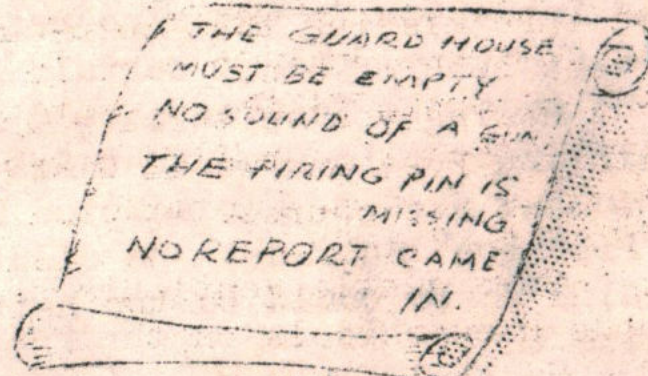 THE GUARD HOUSE
MUST BE EMPTY
NO SOUND OF A GUN
THE FIRING PIN IS
MISSING
NO REPORT CAME
IN.